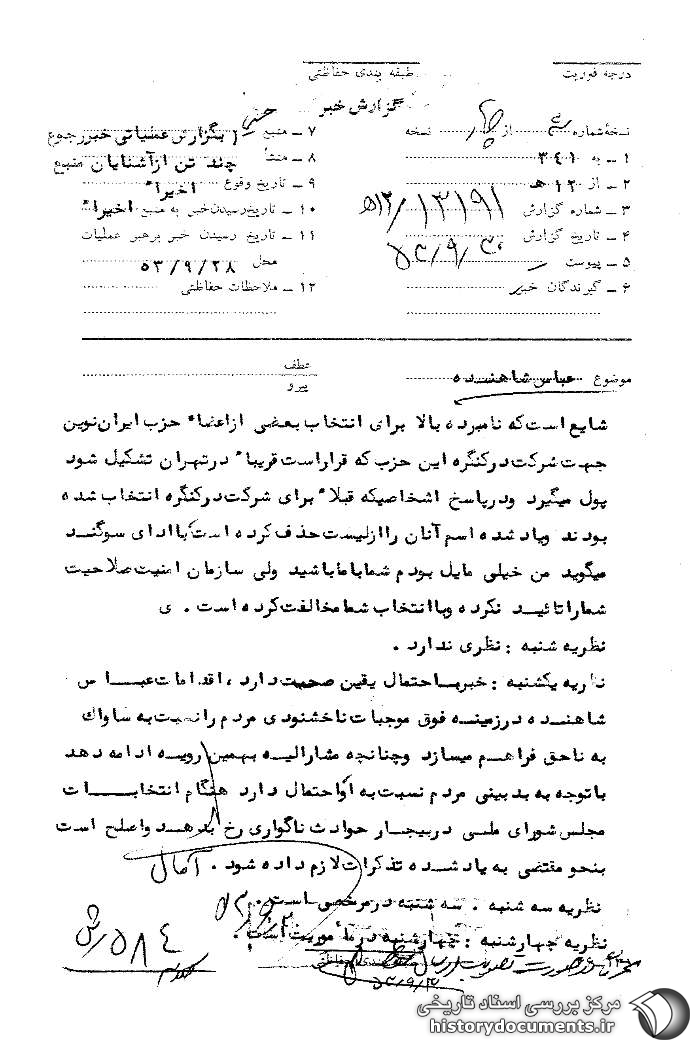 درجه فوریت
طبقه بندی حفاظتی
گزارش خبر
نسخهٔ شماره ۳ از چهار نسخه
۱ ـ به ۳۴۱
۲ ـ از ۱۲ هـ
۳ ـ شماره گزارش ۱۳۱۹۱/۱۲هـ
۴ ـ تاریخ گزارش ۵۳/۹/۳۰
۵ ـ پیوست
۶ ـ گیرندگان خبر
۷ ـ منبع بگزارش عملیاتی خبر رجوع
۸ ـ منشأ چند تن از آشنایان منبع
۹ ـ تاریخ وقوع اخیراً
۱۰ ـ تاریخ رسیدن خبر به منبع اخیراً
۱۱ ـ تاریخ رسیدن خبر برهبر عملیات
محل ۵۳/۹/۲۸
۱۲ ـ ملاحظات حفاظتی
موضوع عباس شاهنده
عطف
پیرو
شایع است که نامبرده بالا برای انتخاب بعضی از اعضاء حزب ایران نوین
جهت شرکت در کنگره این حزب که قرار است قریباً در تهران تشکیل شود
پول میگیرد و در پاسخ اشخاصیکه قبلاً برای شرکت در کنگره انتخاب شده
بودند و یاد شده اسم آنان را از لیست حذف کرده است با ادای سوگند
میگوید من خیلی مایل بودم شما با ما باشید ولی سازمان امنیت صلاحیت
شما را تائید نکرده و با انتخاب شما مخالفت کرده است . ی
نظریه شنبه : نظری ندارد .
نظریه یکشنبه : خبر با احتمال یقین صحت دارد ، اقدامات عباس
شاهنده در زمینه فوق موجبات ناخشنودی مردم را نسبت به ساواک
به ناحق فراهم میسازد و چنانچه مشارالیه بهمین رویه ادامه دهد
با توجه به بدبینی مردم نسبت به او احتمال دارد هنگام انتخابات
مجلس شورای ملی در بیجار حوادث ناگواری رخ بدهد و اصلح است
بنحو مقتضی به یاد شده تذکرات لازم داده شود . آمال
نظریه سه شنبه . سه شنبه در مرخصی است .
نظریه چهارشنبه : چهارشنبه در مأموریت است .
طبقه بندی حفاظتی
۵۸۴
مرکز بررسی اسناد تاریخی
historydocuments.ir